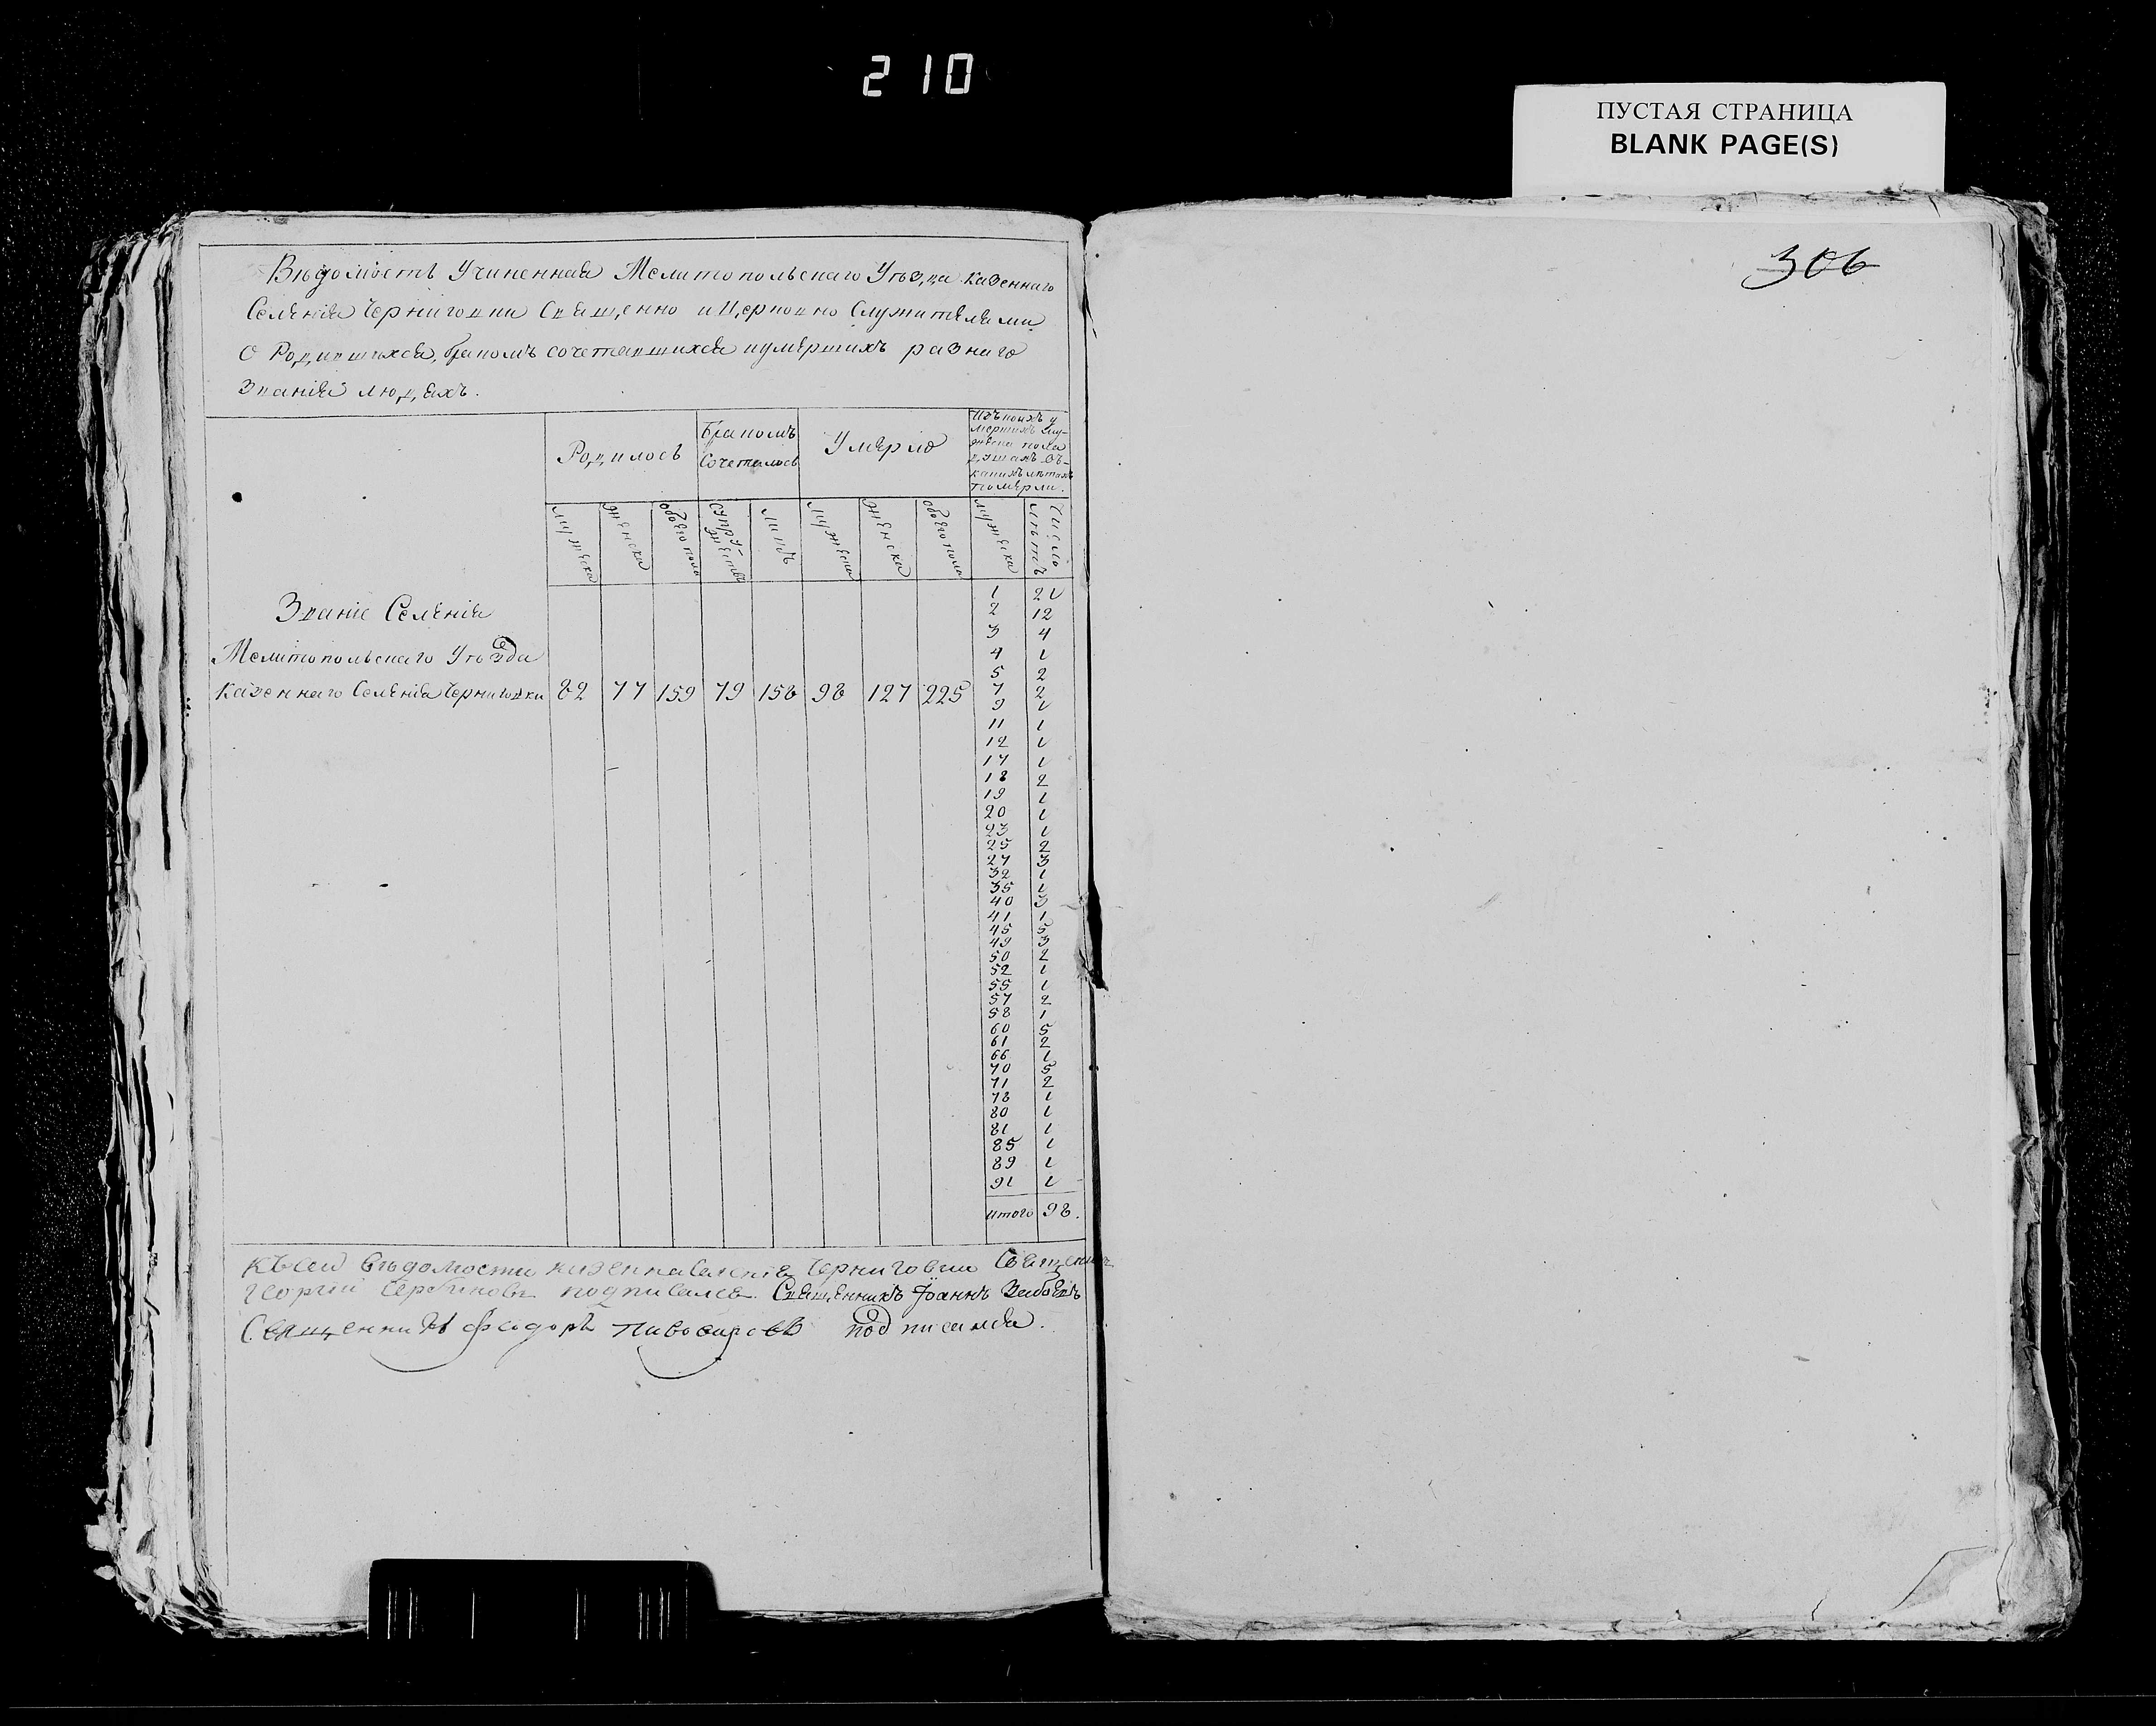 210
ПУСТАЯ СТРАНИЦА
BLANK PAGE(S)
306
Вѣдомость Учиненная Мелитопольскаго Уѣзда казеннаго
Селенія Черниговки Священно и Церковно Служителями
О Родившихся, бракомъ сочетавшихся и умершихъ разнаго
Званія людяхъ.
Родилось
Бракомъ
Сочеталось
Умерло
Изъ коихъ у
мершихъ му-
жеска пола
душахъ въ
какихъ лѣтахъ
померли.
мужеска
женска
обоего пола
супру-
жествъ
лицъ
мужеска
женска
обоего пола
мужеска
Число
лѣтъ
Званіе Селенія
Мелитопольскаго Уѣзда
казеннаго Селенія Черниговки 82 77 159 79 158 98 127 225
1 21
2 12
3 4
4 1
5 2
7 2
9 1
11 1
12 1
17 1
18 2
19 1
20 1
23 1
25 2
27 3
32 1
35 1
40 3
41 1
45 5
49 3
50 2
52 1
55 1
57 2
58 1
60 5
61 2
66 1
70 5
71 2
78 1
80 1
81 1
85 1
89 1
91 1
итого 98.
Къ сей вѣдомости Черниговки Священик
Георгій подписался. Священникъ Іоаннъ
Священникъ Феодоръ подписался.